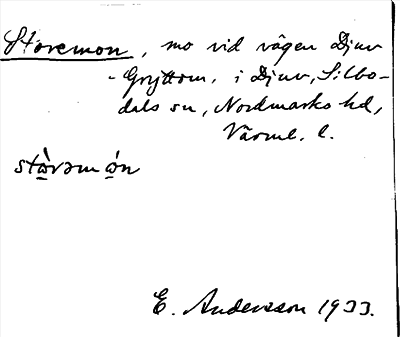 Storemon, mo vid vägen Djuv
-Gryttom, i Djuv, Silbo-
dals sn, Nordmarks hd,
Värml. l.
E. Andersson 1933.